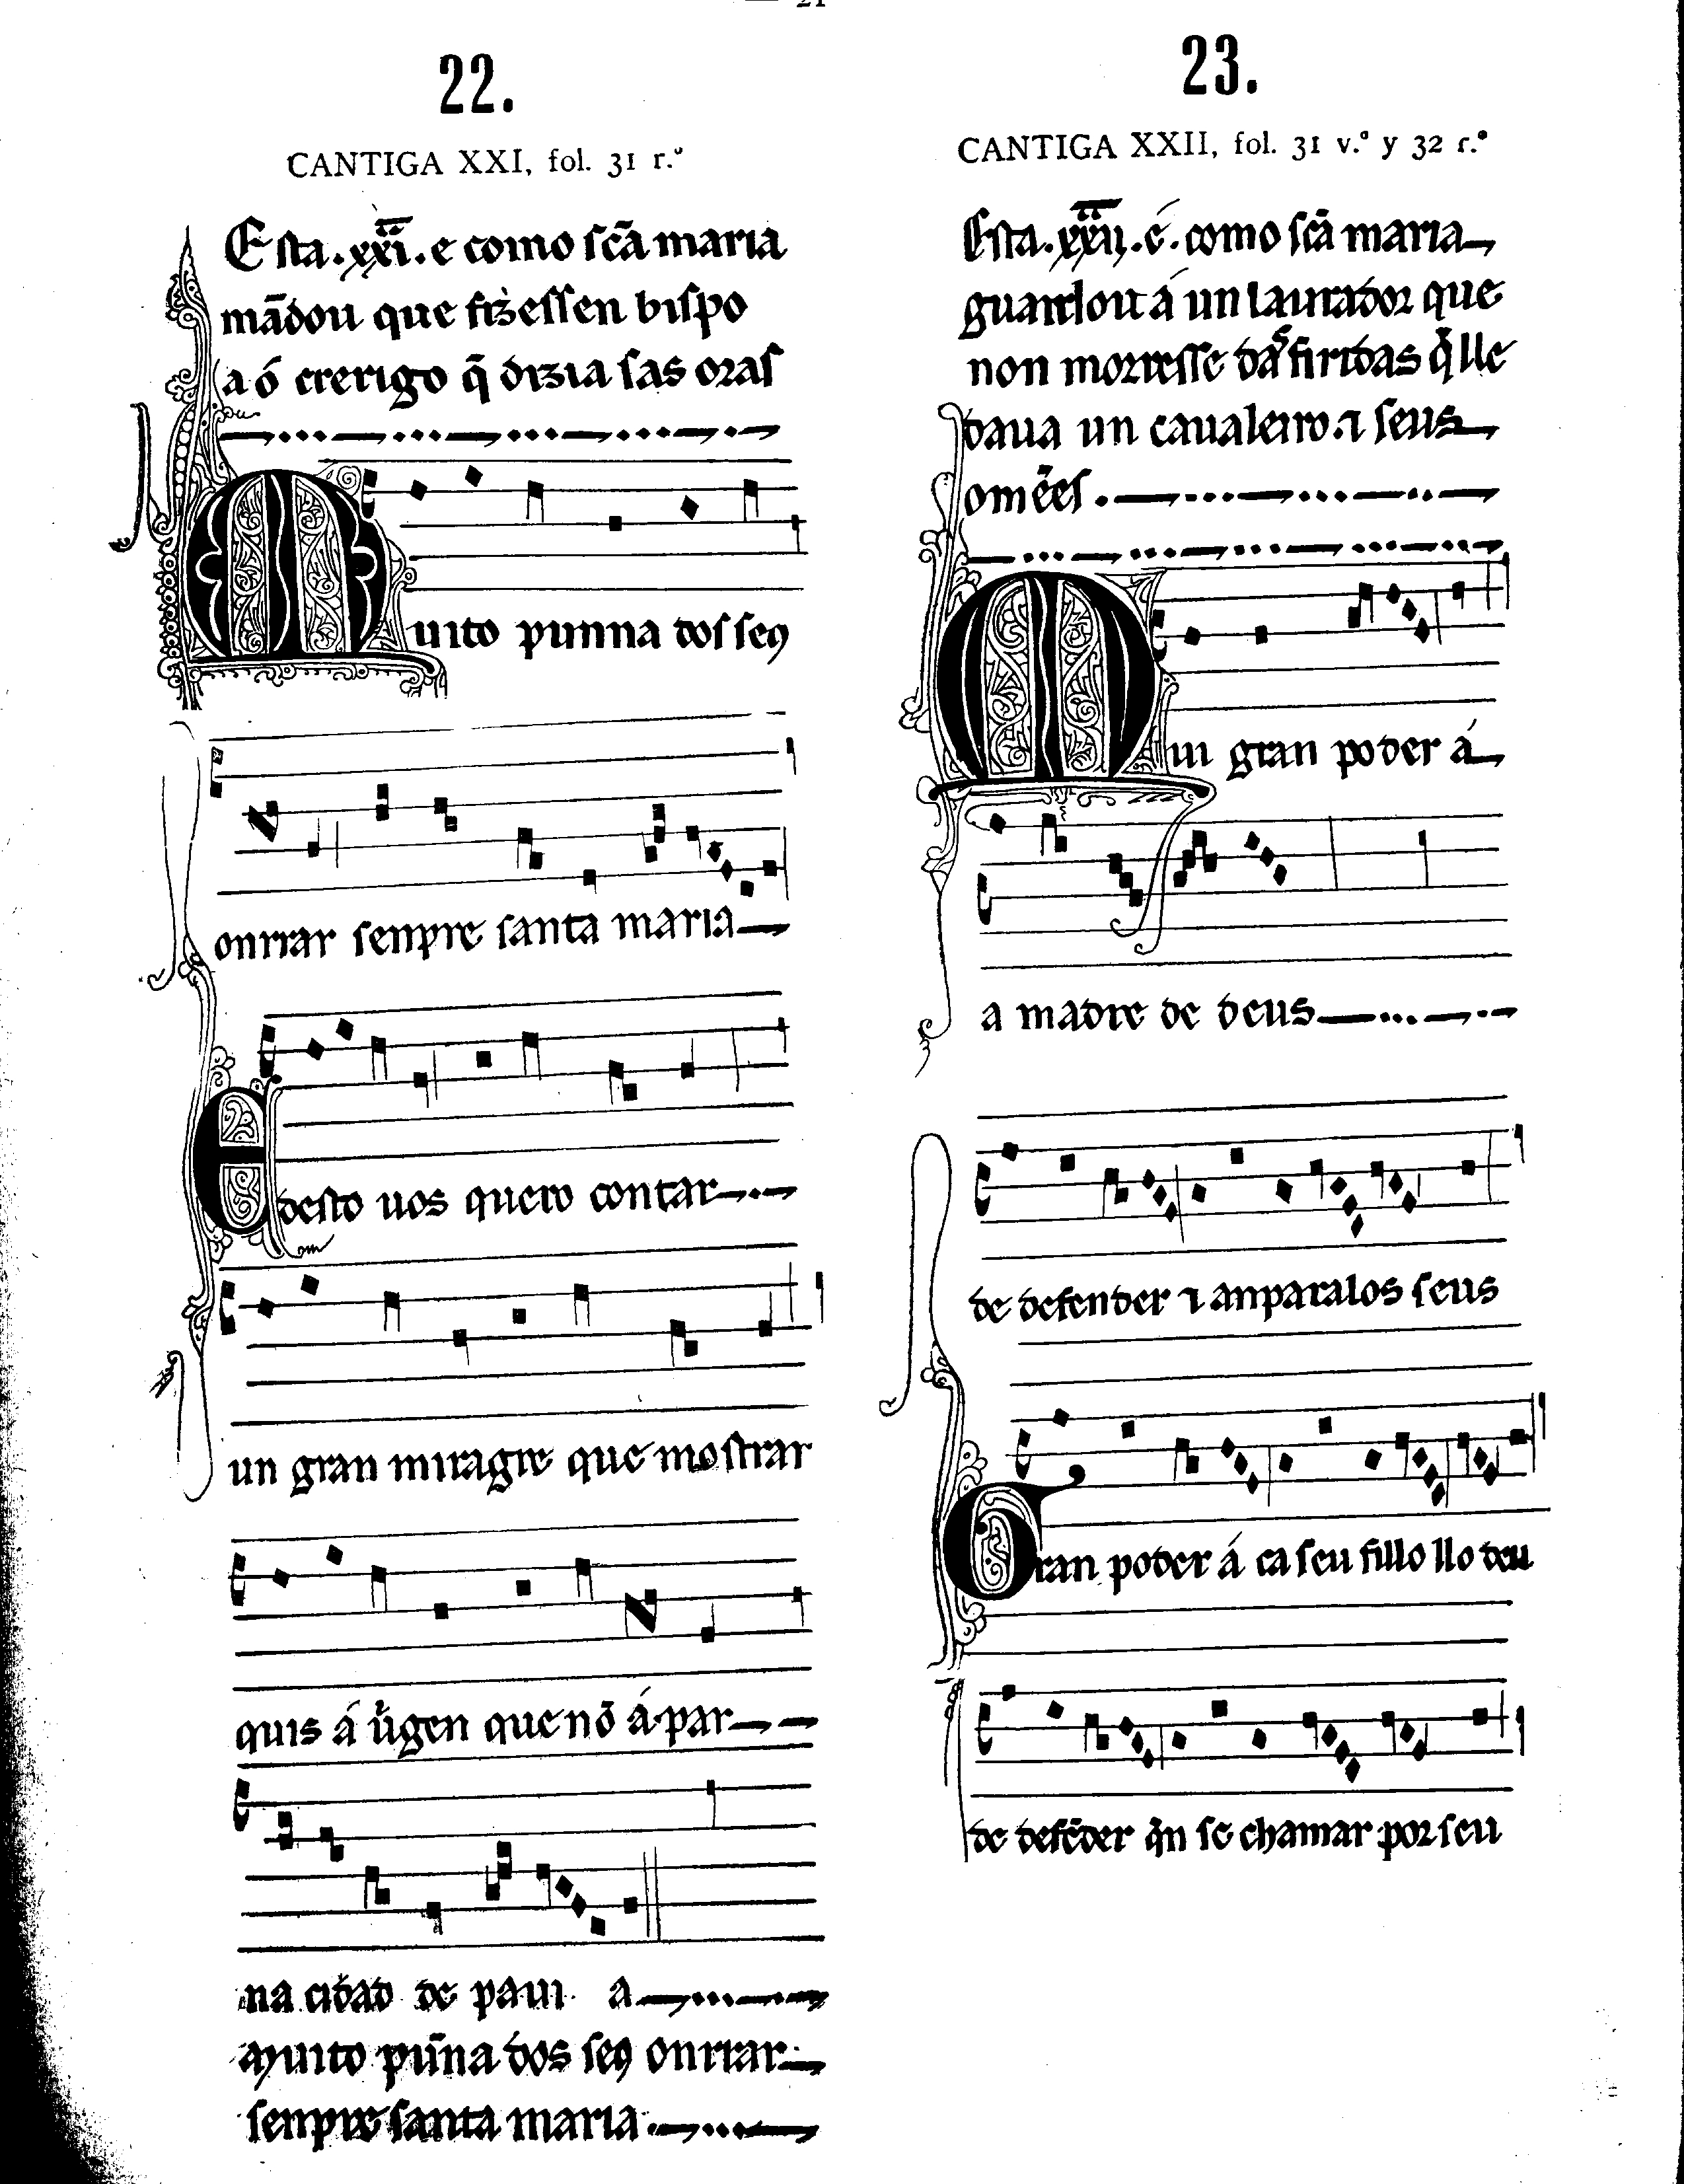 — 21
22.
CANTIGA XXI, fol. 31 r.º
Esta .xxi. e como scã maria
mãdou que fizessen bispo
a ó crerigo q̃ dizia sas oras
Muito punna dos seꝯ
onrrar senpre santa maria
E desto uos quero contar
un gran miragre que mostrar
quis á uĩgen que nõ á par
na cidad de paui a
Muito pũna dos seꝯ onrrar
senpre santa maria
23.
CANTIGA XXII, fol. 31 v.º y 32 r.º
Esta .xxij. é. como scã maria
guardou á un laurador que
non morresse das firidas q̃ lle
daua un caualeiro. ⁊ seus
omẽes.
Mui gran poder á
a madre de deus
de defender ⁊ anparalos seus
Gran poder á ca seu fillo llo deu
de defẽder q̃n se chamar por seu